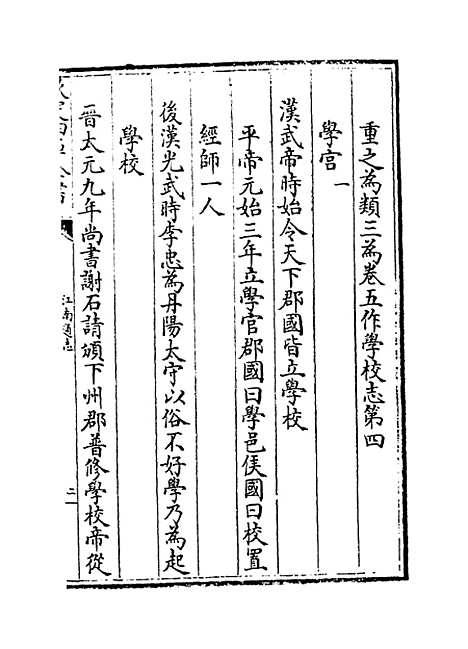 重之為類三為卷五作學校志第四
學宫一
漢武帝時始令天下郡國皆立學校
平帝元始三年立學官郡國曰學邑侯國曰校置
經師一人
後漢光武時李忠為丹陽太守以俗不好學乃為起
學校
晉太元九年尚書謝石請頒下州郡普修學校帝從
江南通志
二